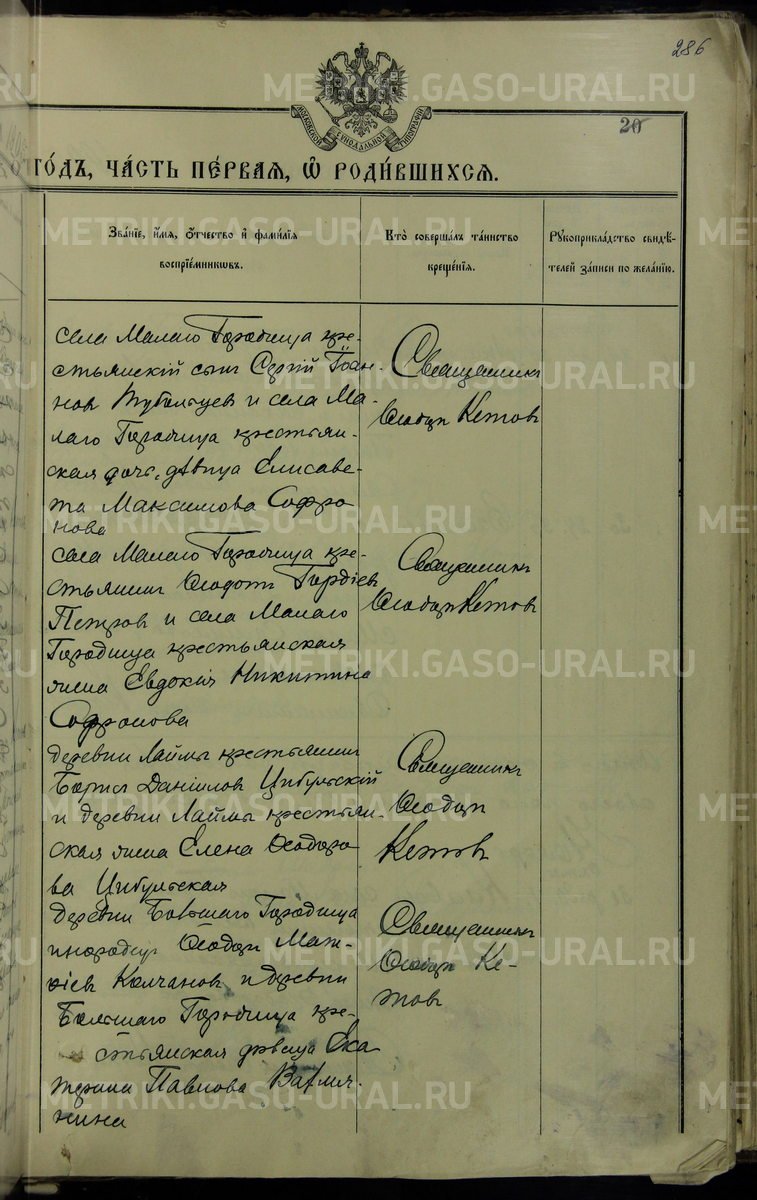 286
20
МОСКОВСКОЙ СѴНОДАЛЬНОЙ ТИПОГРАФІИ
ГО́ДЪ, ЧА́СТЬ ПЕ́РВАЯ, Ѡ҆ РОДИ́ВШИХСЯ.
Зва́нїе, и҆́мѧ, ѻ҆́тчество и҆ фами́лїѧ
воспрїе́мникѡвъ.
Кто̀ соверша́лъ та́инство
креще́нїѧ.
Рꙋкоприкла́дство свидѣ́-
телей за́писи по жела́нїю.
села Малаго Городища кре-
стьянскій сынъ Сергій Іоан-
новъ и села Ма-
лаго Городища крестьян-
ская дочь, дѣвица Елисаве-
та Максимова Софро
нова
Священникъ
Ѳеодоръ Кетовъ
села Малаго Городища кре-
стьянинъ Ѳеодотъ Гордіевъ
Петровъ и села Малаго
Городища крестьянская
жена Евдокія Никитина
Софронова
Священникъ
Ѳеодоръ Кетовъ
деревни Лаймы крестьянинъ
Борисъ Даніиловъ Цибульскій
и деревни Лаймы крестьян-
ская жена Елена Ѳеодоро
ва Цибульская
Священникъ
Ѳеодоръ
Кетовъ
деревни Большаго Городища
инородецъ Ѳеодоръ Мат-
ѳіевъ Колчановъ и деревни
Большаго Городища кре-
стьянская дѣвица Ека
терина Павлова
нина
Священникъ
Ѳеодоръ Ке-
товъ
METRIKI.GASO-URAL.RU